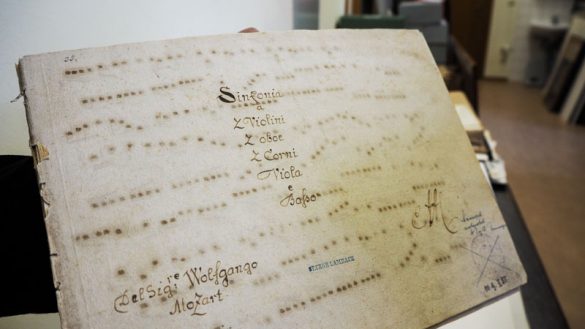 Sinfonia
a
2 Violini
2 oboe
2 Corni
Viola
e
Baßo
Del Sig:re Wolfgango
Mozart
STIFT LAMBACH